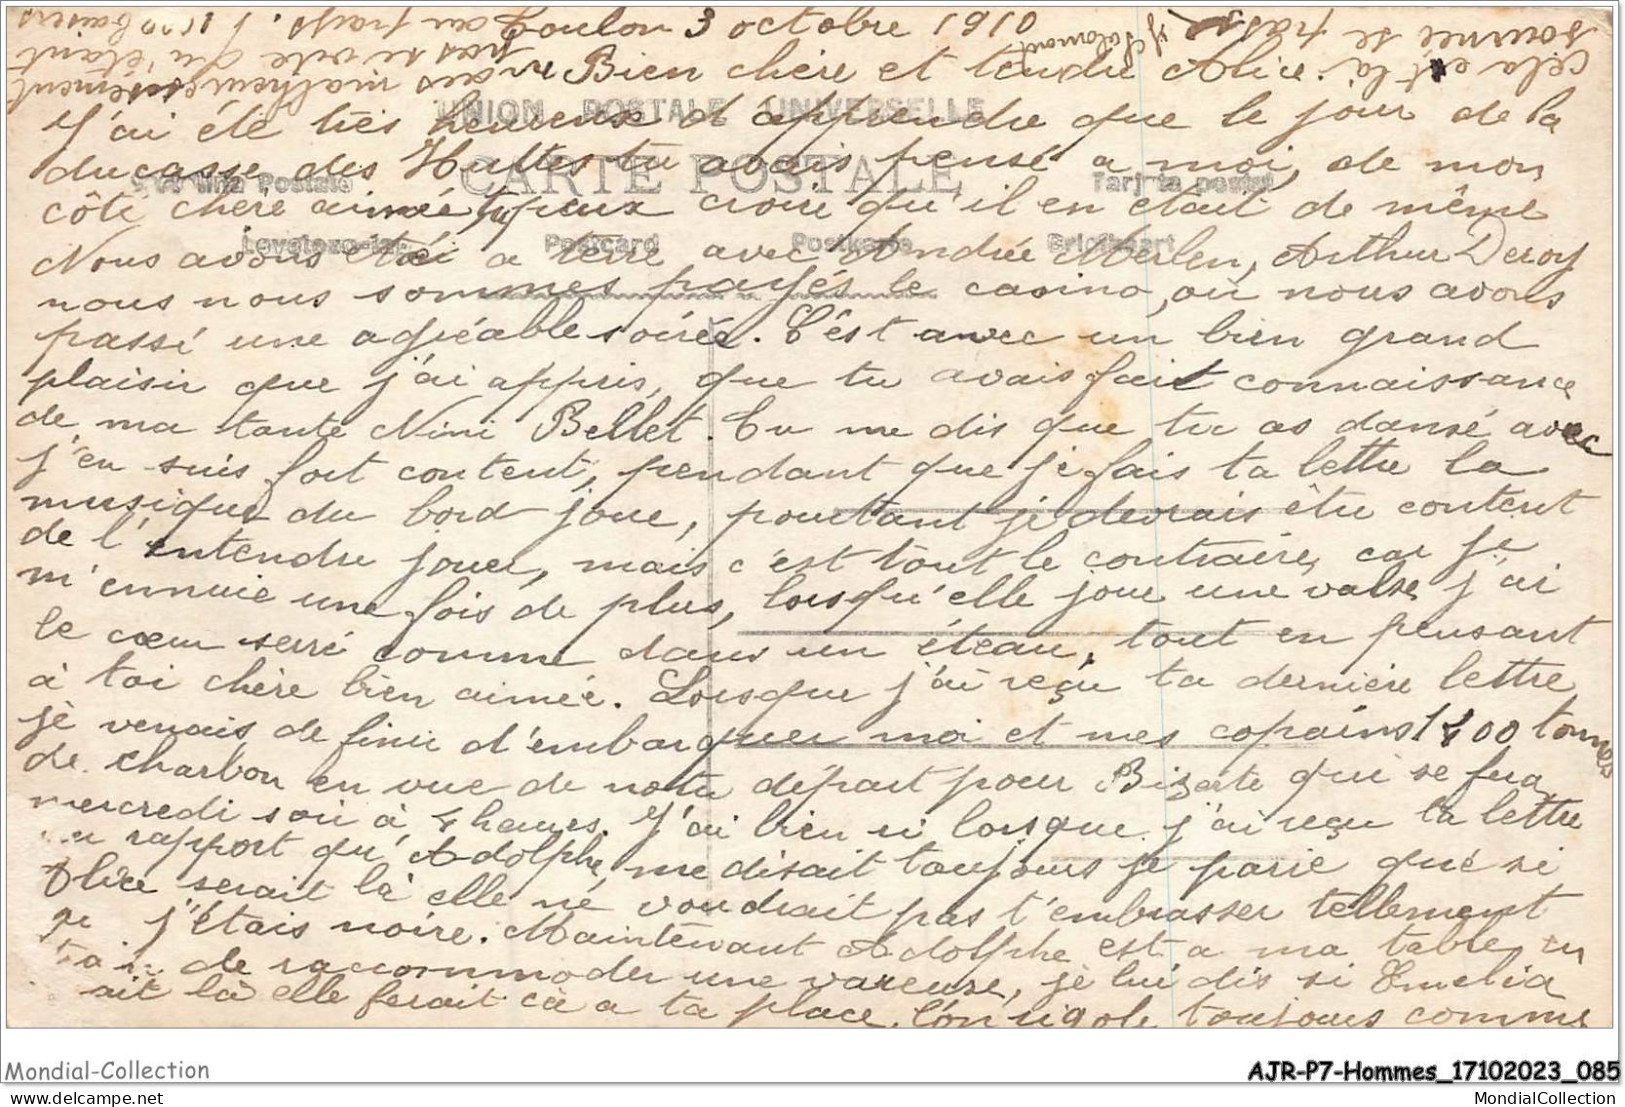 Toulon 3 octobre 1910
Bien chère et tendre Alice.
UNION POSTALE UNIVERSELLE
J'ai été très heureux d'apprendre que le jour de la
CARTE POSTALE
ducasse des Haltes tu avais pensé a moi, de mon
côté chère aimée tu peux croire qu'il en était de même
Postcard
Nous avons été a terre avec Andrée Merlen, Arthur Deroy
nous nous sommes payés le casino, où nous avons
passé une agréable soirée. C'est avec un bien grand
plaisir que j'ai appris, que tu avais fait connaissance
de ma tante Nini Bellet. Tu me dis que tu as dansé avec
j'en suis fort content, pendant que je fais ta lettre la
musique du bord joue, pourtant je devrais être content
de l'entendre jouer, mais c'est tout le contraire, car je
m'ennuie une fois de plus, lorsqu'elle joue une valse j'ai
le cœur serré comme dans un éteau, tout en pensant
à toi chère bien aimée. Lorsque j'ai reçu ta dernière lettre
je venais de finir d'embarquer moi et mes copains 1400 tonnes
de charbon en vue de notre départ pour Bizerte qui se fera
mercredi soir à 4 heures. J'ai bien ri lorsque j'ai reçu ta lettre
rapport qu'Adolphe, me disait toujours je parie que si
Alice serait là elle ne voudrait pas t'embrasser tellement
que j'étais noire. Maintenant Adolphe est a ma table en
train de raccommoder une vareuse, je lui dis si Emelia
était là elle ferait cà a ta place. L'on rigole toujours comme
cela et la journée se passe
mais malheureusement
pas si vite qu'étant
au pays.
Mondial-Collection
AJR-P7-Hommes_17102023_085
MondialCollection